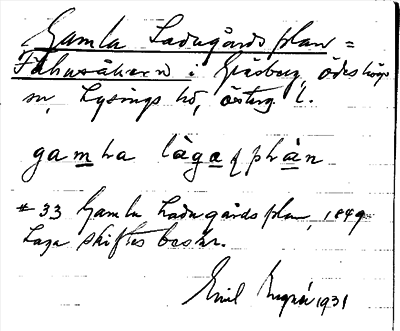 Gamla Ladugårds plan =
Fähusåkern i Gräsberg, Ödeshögs
sn, Lysings hd, Österg. l.
gamla làga plàn
# 33 Gamla Ladugårdsplan, 1849
Laga skiftes beskr.
Emil 1931